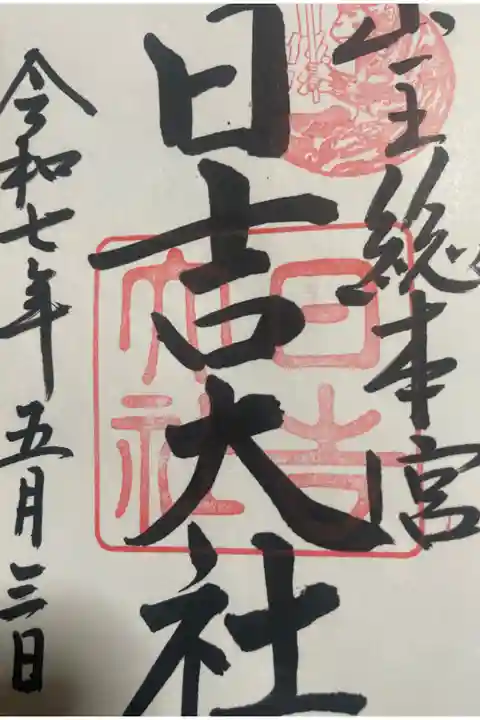 山王総本宮
日吉大社
令和七年五月三日
日吉
大社